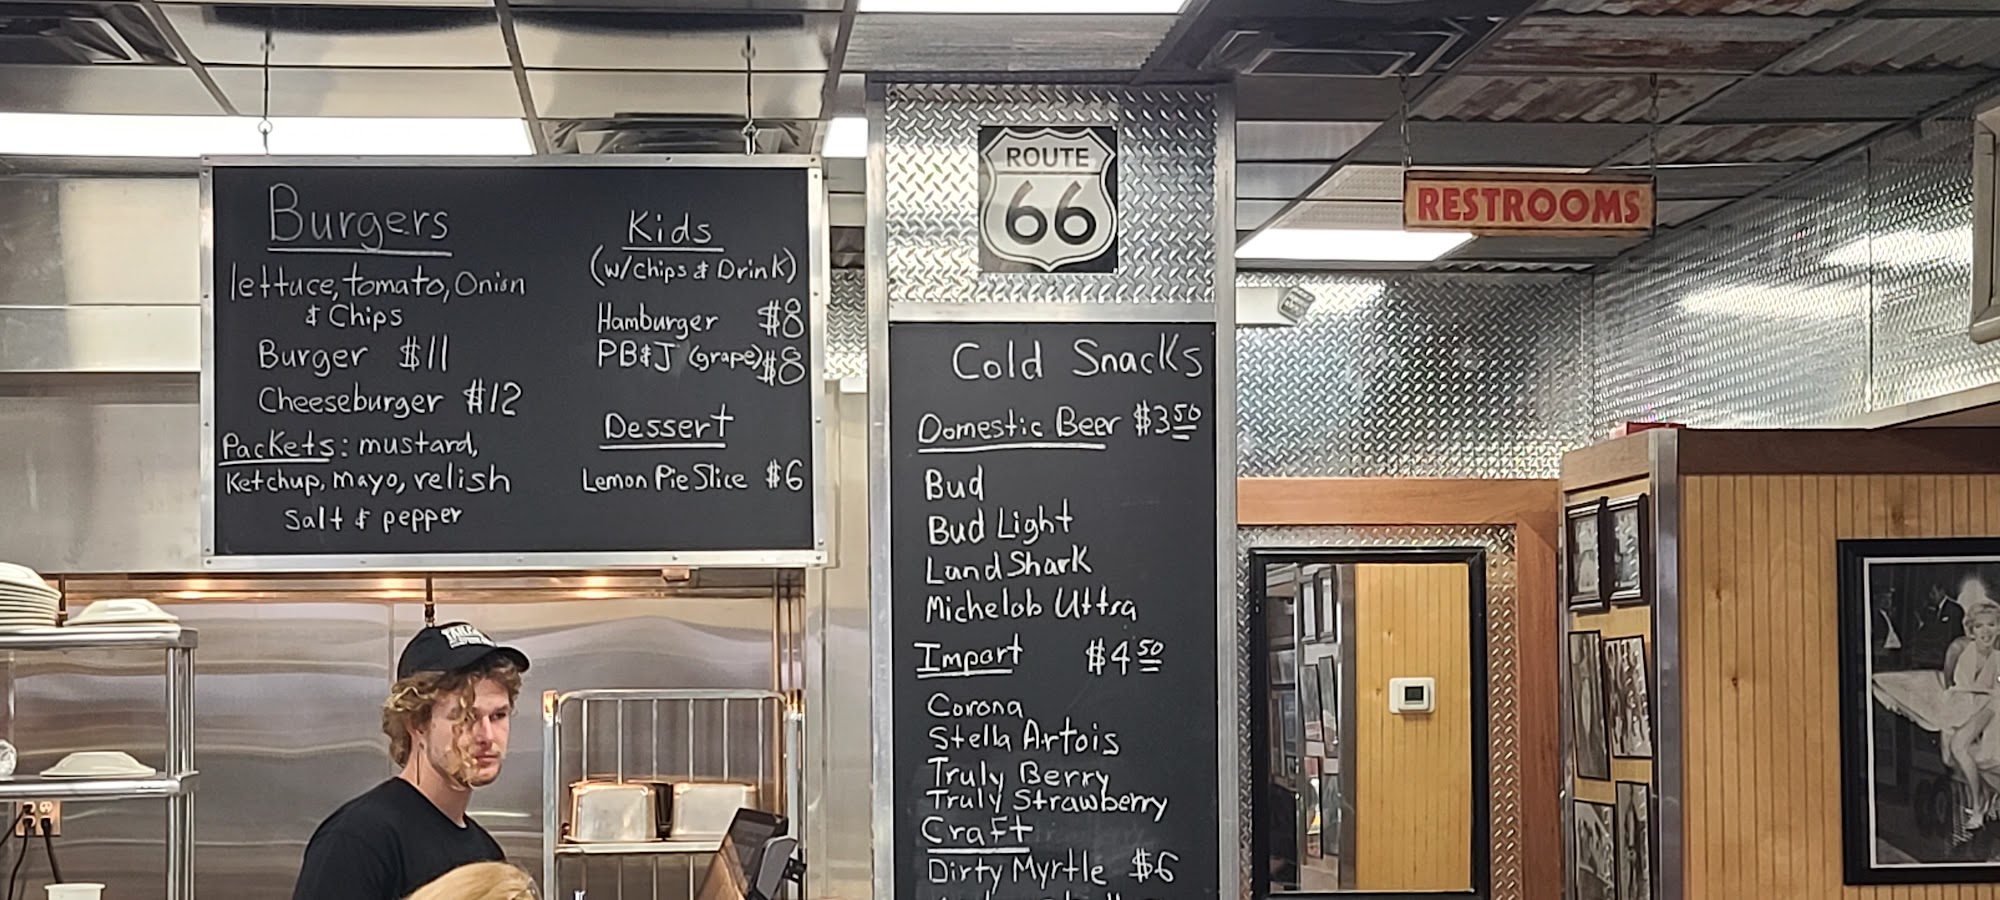 Burgers
lettuce, tomato, Onion
& Chips
Burger $11
Cheeseburger $12
Packets: mustard,
Ketchup, mayo, relish
Salt & pepper
Kids
(w/chips & Drink)
Hamburger $8
PB&J (grape) $8
Dessert
Lemon Pie Slice $6
ROUTE
66
Cold Snacks
Domestic Beer $3 50
Bud
Bud Light
Land Shark
Michelob Ultra
Import $4 50
Corona
Stella Artois
Truly Berry
Truly Strawberry
Craft
Dirty Myrtle $6
RESTROOMS